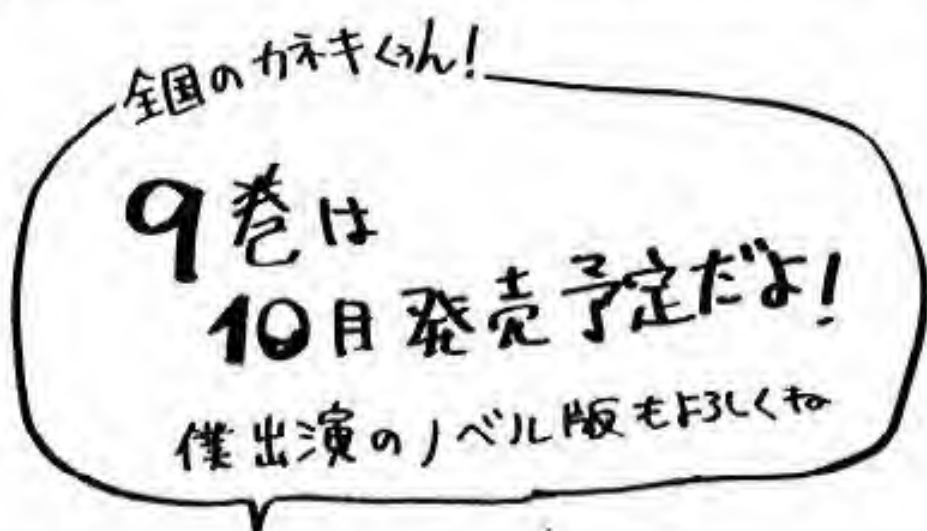 全国のカネキくぅん!
9巻は
10月発売予定だよ!
僕出演のノベル版もよろしくね